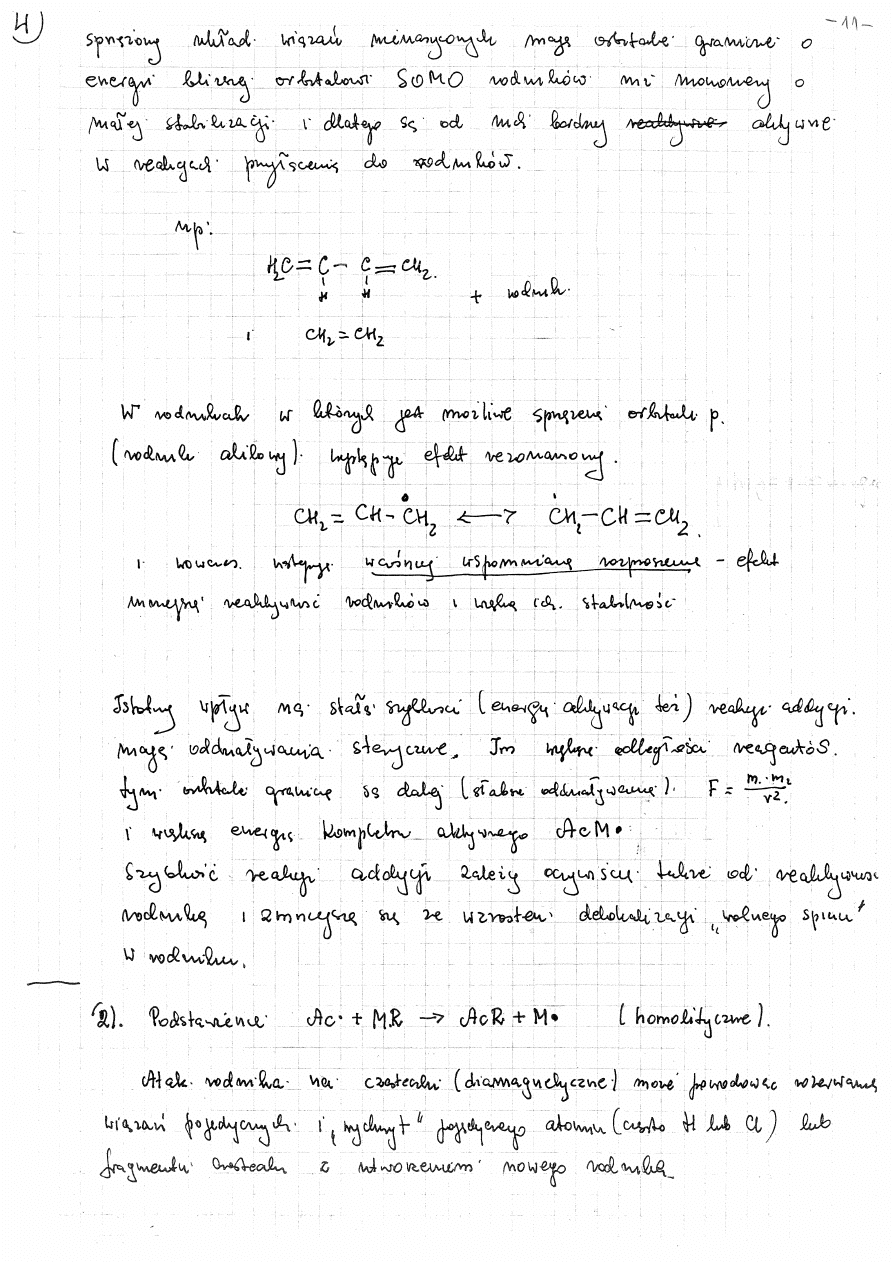 4)
-11-
sprzężony układ wiązań nienasyconych mają orbitale graniczne o
energii bliżej orbitalowi SOMO rodników niż monomery o
małej stabilizacji i dlatego są od nich bardziej reaktywne aktywne
w reakcjach przyłączenia do rodników.
np:
H2C=C-C=CH2.
H H
+ rodnik.
i CH2=CH2
W rodnikach w których jest możliwe sprzężenie orbitali p.
(rodnik allilowy). występuje efekt rezonansowy.
CH2=CH-ĊH2 <-> ĊH2-CH=CH2.
i wówczas. następuje wcześniej wspomniane rozproszenie - efekt
mniejsza reaktywność rodników i większa ich. stabilność
Istotny wpływ na stałą szybkości (energię aktywacji też) reakcji addycji.
mają oddziaływania steryczne. Im większe odległości reagentów.
tym orbitale graniczne są dalej (słabe oddziaływanie). F = m1·m2/r2.
i większa energia kompleksu aktywnego AcM•
Szybkość reakcji addycji zależy oczywiście także od reaktywności
rodnika i zmniejsza się ze wzrostem delokalizacji „wolnego spinu"
w rodniku.
(2). Podstawienie Ac• + MR → AcR + M• (homolityczne).
Atak rodnika na cząsteczki (diamagnetyczne) może powodować rozerwanie
wiązań pojedynczych i „wychwyt" pojedynczego atomu (często H lub Cl) lub
fragmentu cząsteczki z utworzeniem nowego rodnika